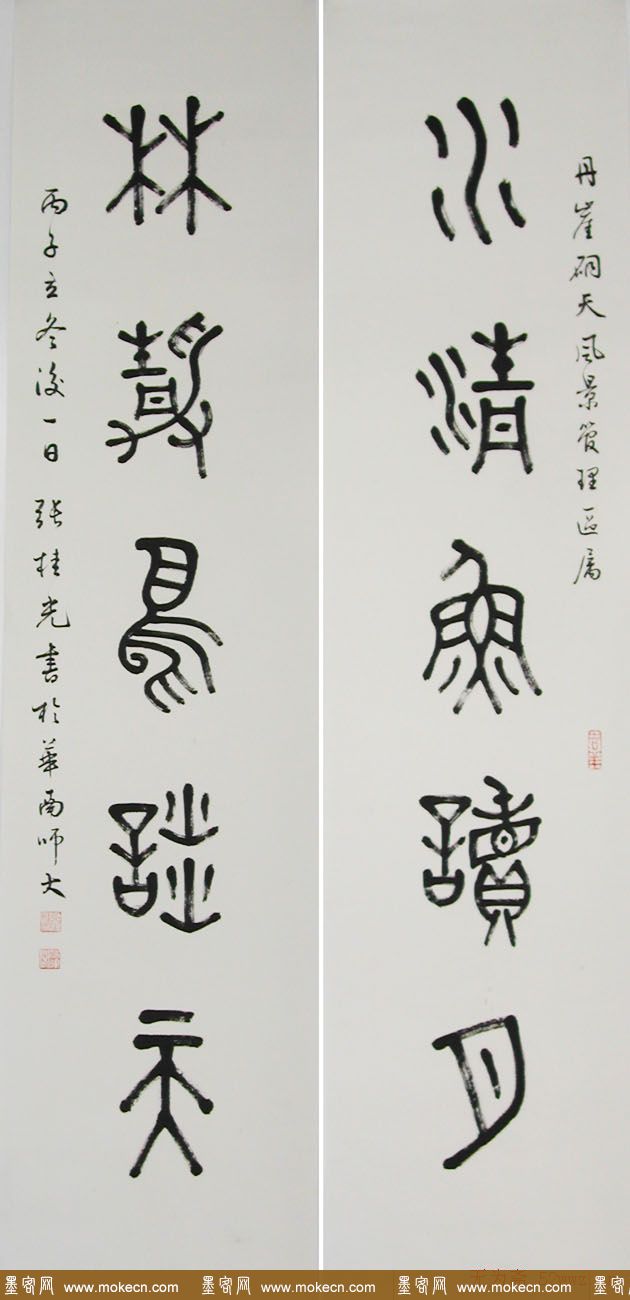 丹崖硐天風景管理區屬
水清魚讀月
林靜鳥談天
丙子立冬後一日 張桂光書於華南師大
墨客网 www.mokecn.com 墨客网 www.mokecn.com 墨客网 www.mokecn.com